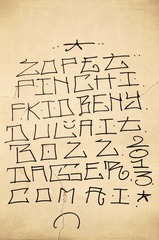 ZOPEZ
FINCHI
FKIDBENY
DUWAIT
BOZZ
DAGGER
COMAI.
2013.